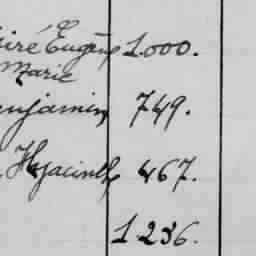 iré Eugène 1.000.
Marie
enjamin 749.
Hyacinthe 467.
1 236.